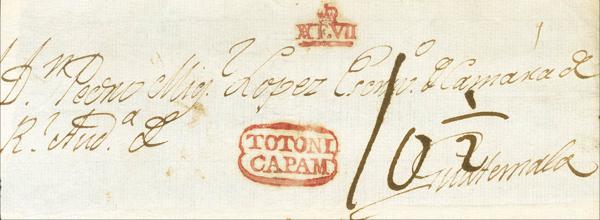 F.VII
A Dn. Pedro Migl. Lopez Escrivo. de Camara de
Rl. Auda. de
TOTONI
CAPAM
10 1/2
Guatemala